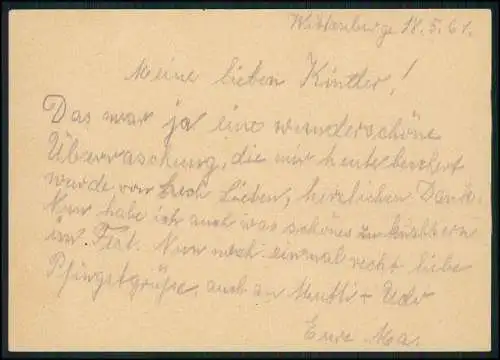 Wittenberge 18.5.61.
Meine lieben Kinder!
Das war ja eine wunderschöne
Überraschung, die mir heute beschert
wurde von Euch Lieben, herzlichen Dank.
Nun habe ich auch was schönes zum
im Fest. Nun noch einmal recht liebe
Pfingstgrüße, auch an Mutti + Udo
Eure Ma.